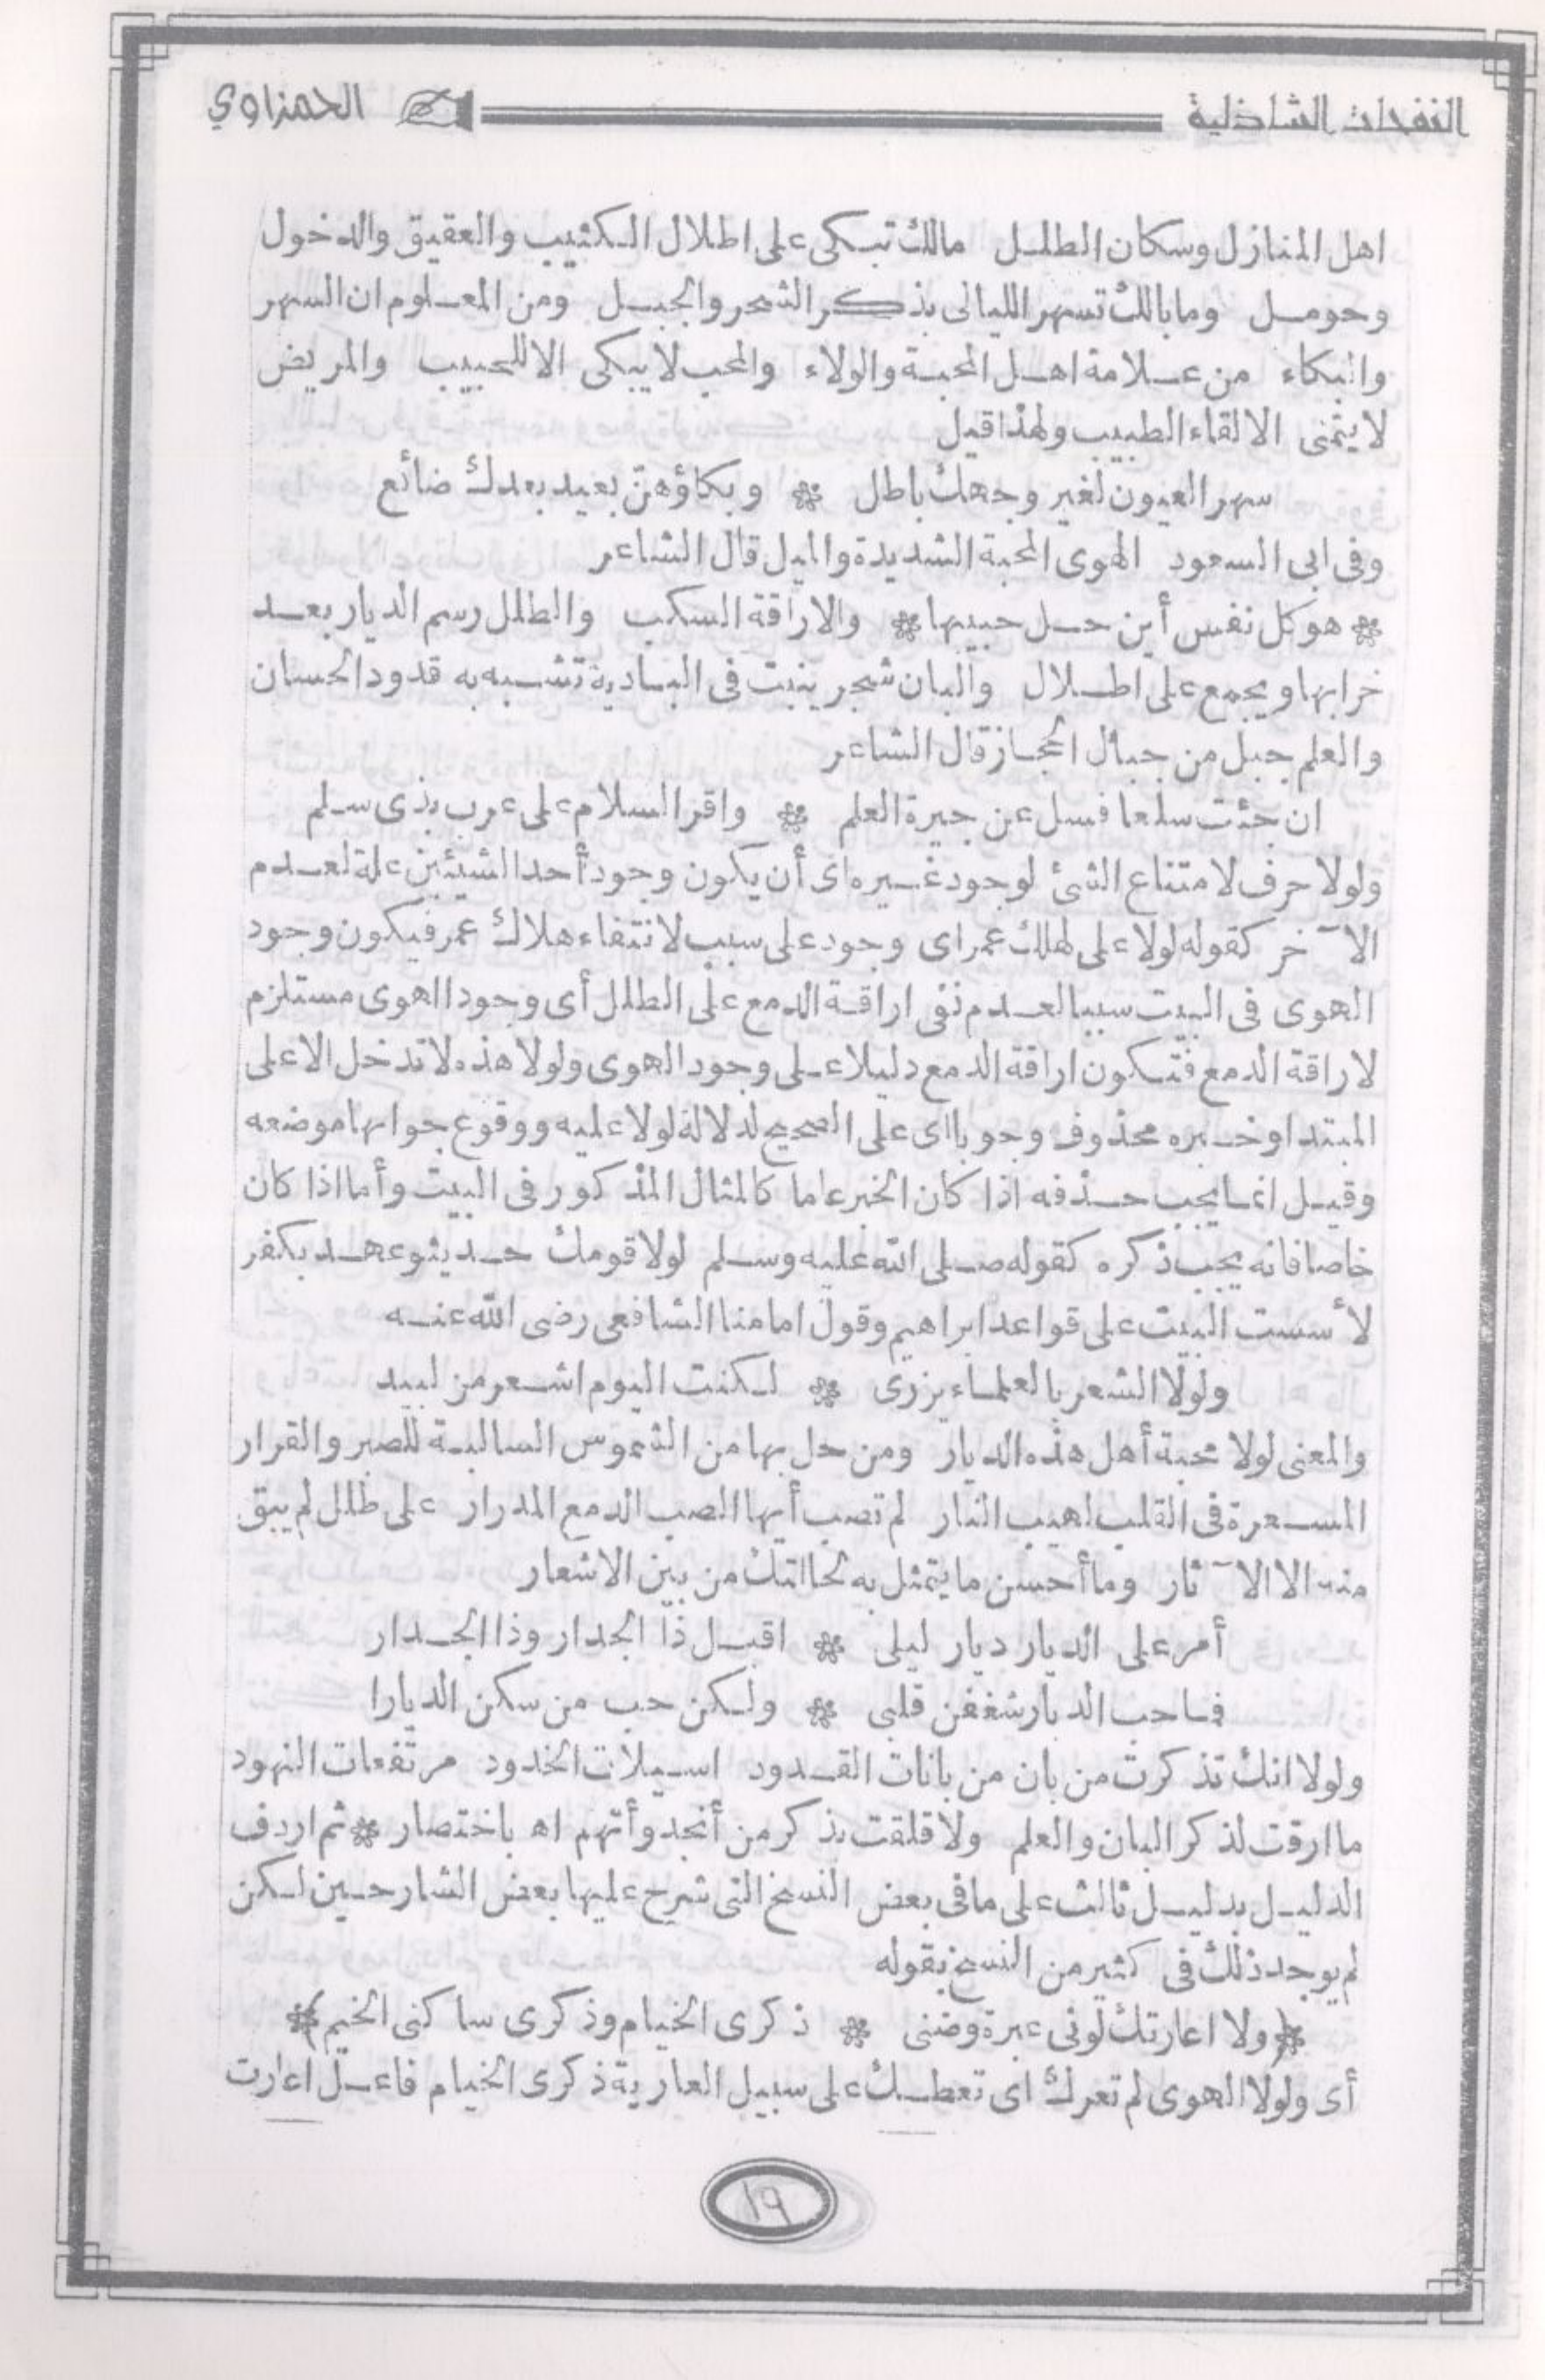 النفحات الشاذلية الحمزاوي
اهل المنازل وسكان الطلل مالك تبكى على اطلال الكثيب والعقيق والدخول
وحومل ومابالك تسهر الليالى بذكر الشجر والجبل ومن المعلوم ان السهر
والبكاء من علامة اهل المحبة والولاء والمحب لا يبكى الا للحبيب والمريض
لا يتمنى الا لقاء الطبيب ولهذا قيل
سهر العيون لغير وجهك باطل * وبكاؤهن بعيد بعدك ضائع
وفى ابى السعود الهوى المحبة الشديدة والميل قال الشاعر
* هو كل نفس أين حل حبيبها * والاراقة السكب والطلل رسم الديار بعد
خرابها ويجمع على اطلال والبان شجر ينبت فى البادية تشبه به قدود الحسان
والعلم جبل من جبال الحجاز قال الشاعر
ان جئت سلعا فسل عن جيرة العلم * واقر السلام على عرب بذى سلم
ولولا حرف لامتناع الشئ لوجود غيره اى أن يكون وجود أحد الشيئين علة لعدم
الآخر كقوله لولا على لهلك عمر اى وجود على سبب لانتفاء هلاك عمر فيكون وجود
الهوى فى البيت سببا لعدم نفى اراقة الدمع على الطلل أى وجود الهوى مستلزم
لاراقة الدمع فتكون اراقة الدمع دليلا على وجود الهوى ولولا هذه لا تدخل الا على
المبتدا وخبره محذوف وجوبا اى على الصحيح لدلالة لولا عليه ووقوع جوابها موضعه
وقيل انما يجب حذفه اذا كان الخبر عاما كالمثال المذكور فى البيت وأما اذا كان
خاصا فانه يجب ذكره كقوله صلى الله عليه وسلم لولا قومك حديثو عهد بكفر
لأسست البيت على قواعد ابراهيم وقول امامنا الشافعى رضى الله عنه
ولولا الشعر بالعلماء يزرى * لكنت اليوم اشعر من لبيد
والمعنى لولا محبة أهل هذه الديار ومن حل بها من الشموس السالبة للصبر والقرار
المسعرة فى القلب لهيب النار لم تصب أيها الصب الدمع المدرار على طلل لم يبق
منه الا الآثار وما أحسن ما يتمثل به لحالتك من بين الاشعار
أمر على الديار ديار ليلى * اقبل ذا الجدار وذا الجدار
فما حب الديار شغفن قلبى * ولكن حب من سكن الديارا
ولولا انك تذكرت من بان من بانات القدود اسيلات الخدود مرتفعات النهود
ما ارقت لذكر البان والعلم ولا قلقت بذكر من أنجد وأتهم اه باختصار * ثم اردف
الدليل بدليل ثالث على ما فى بعض النسخ التى شرح عليها بعض الشارحين لكن
لم يوجد ذلك فى كثير من النسخ بقوله
*(ولا اعارتك لونى عبرة وضنى * ذكرى الخيام وذكرى ساكنى الخيم)*
أى ولولا الهوى لم تعرك اى تعطك على سبيل العارية ذكرى الخيام فاعل اعارت
١٩